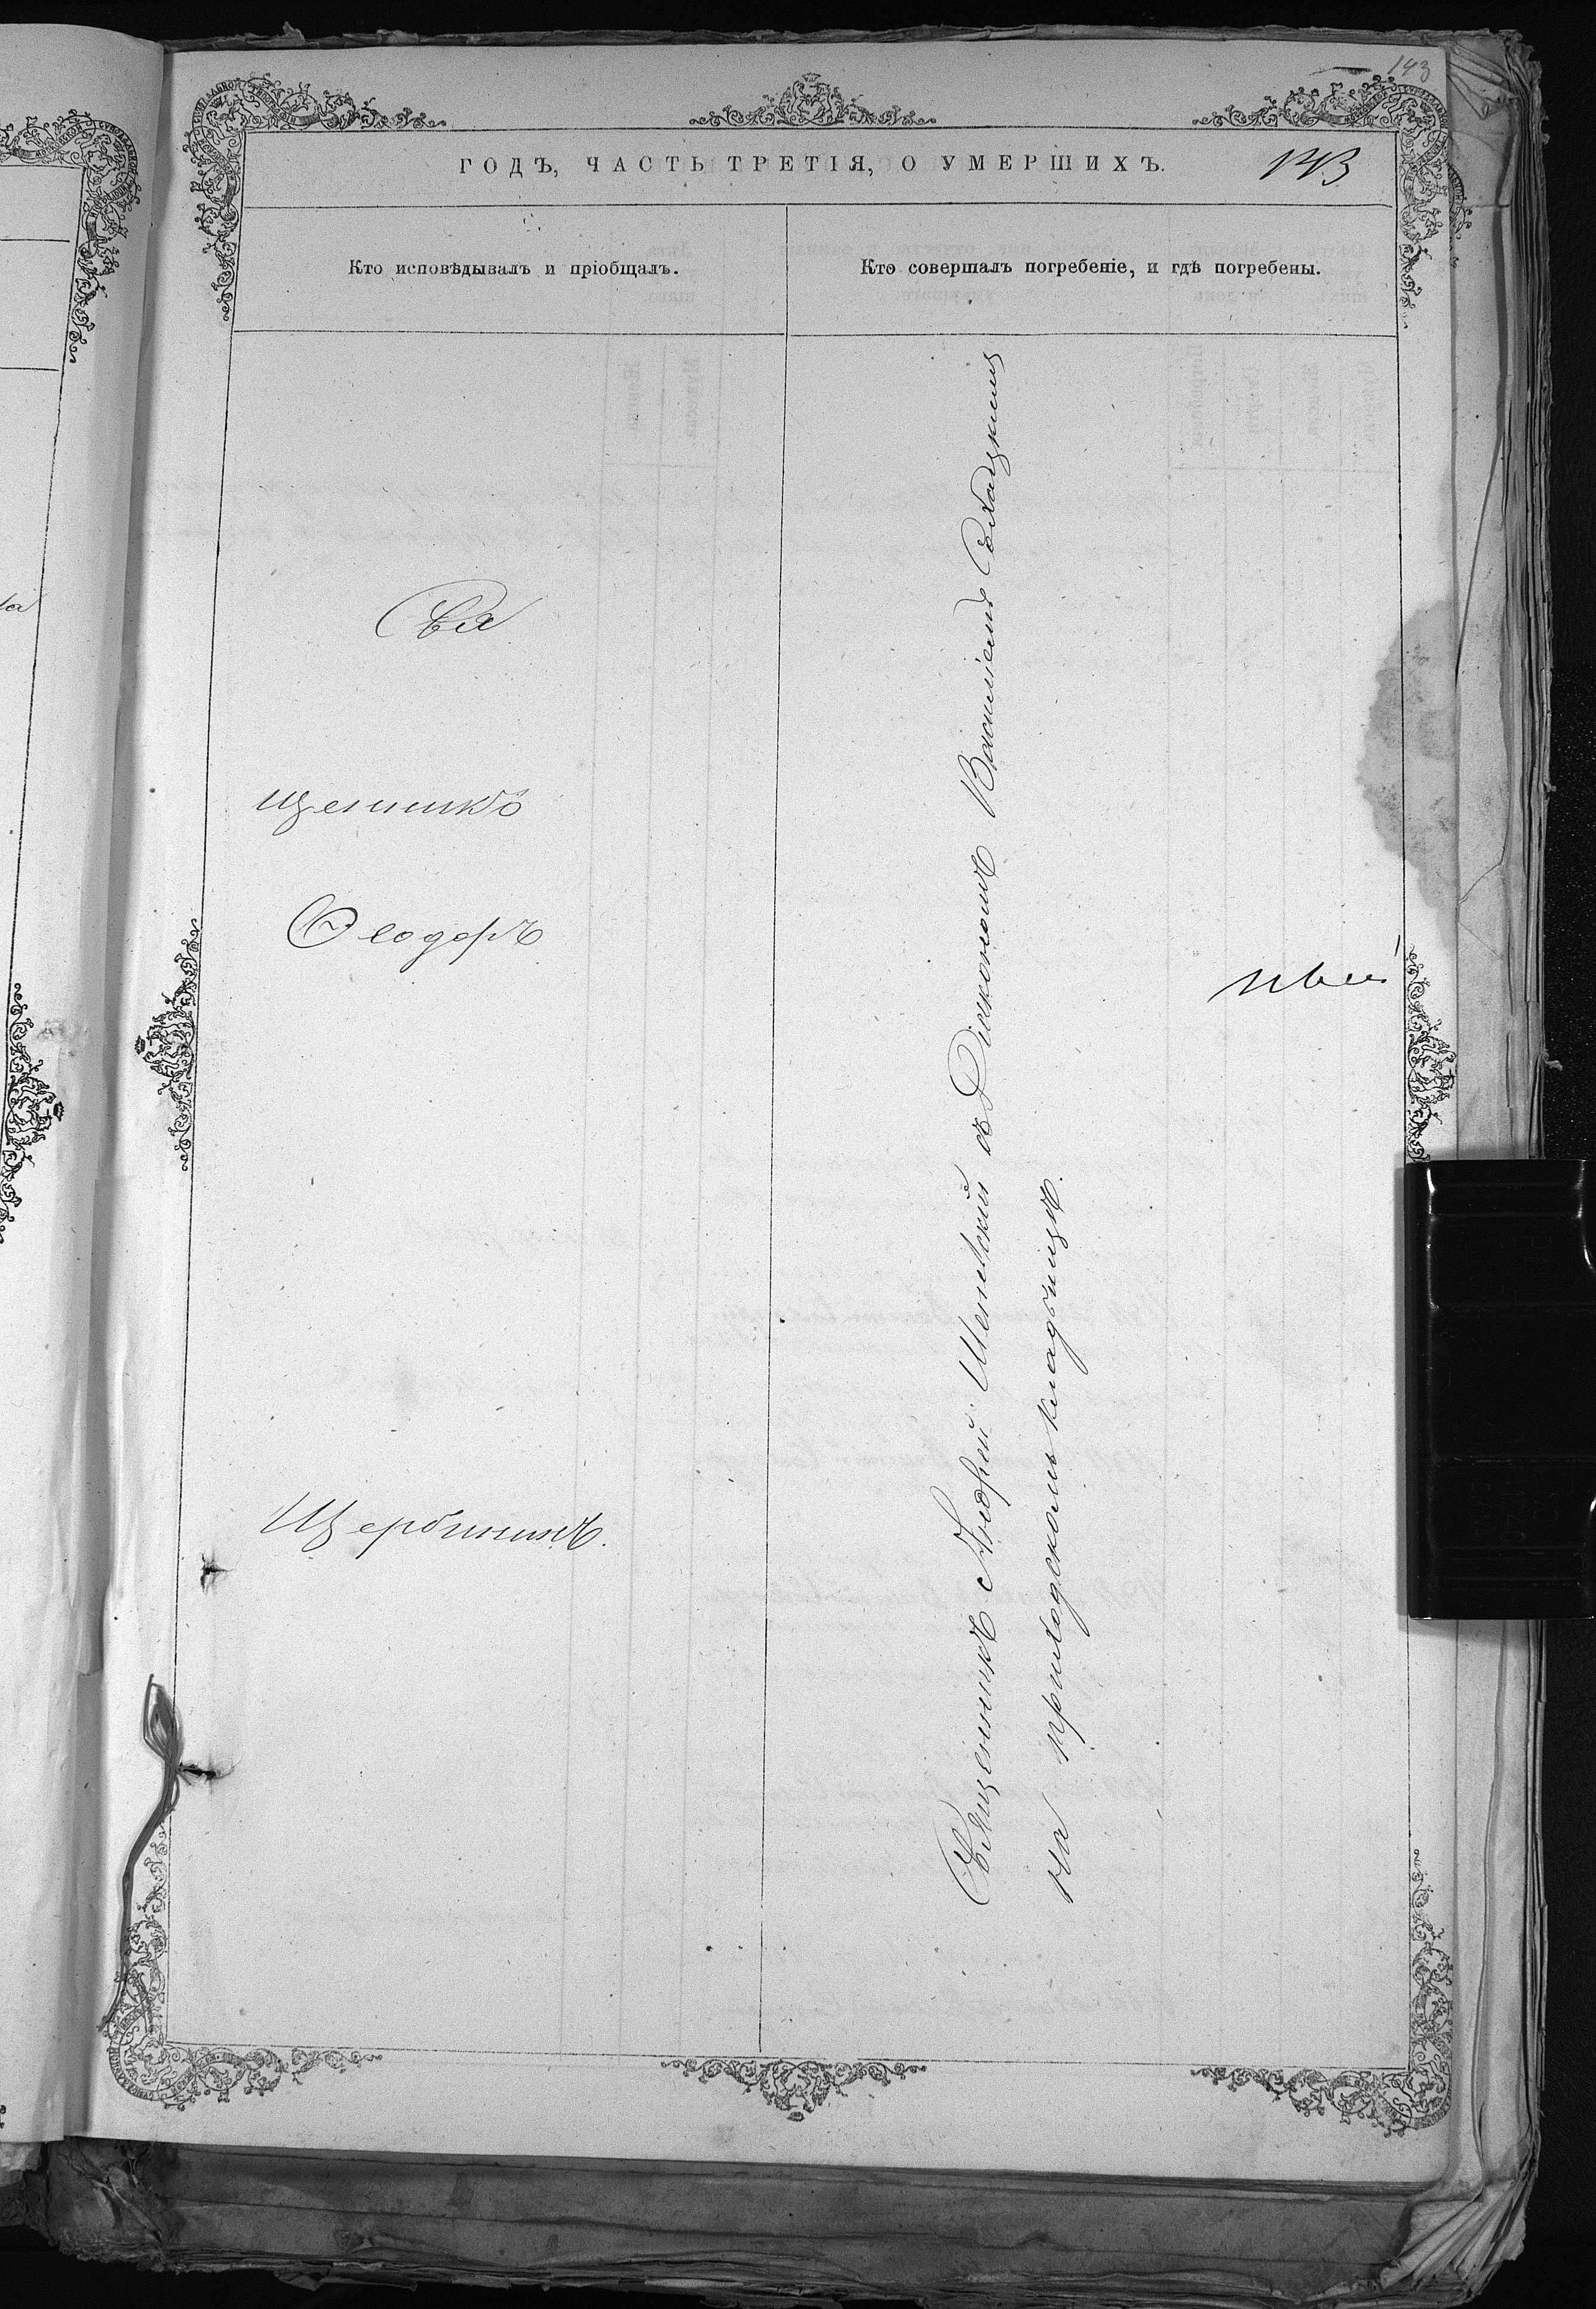 143
ГОДЪ, ЧАСТЬ ТРЕТІЯ, О УМЕРШИХЪ.
143
Кто исповѣдывалъ и пріобщалъ.
Кто совершалъ погребеніе, и гдѣ погребены.
Свя
щенникъ
Ѳеодоръ
Щербининъ.
Священникъ Андрей съ Діакономъ Василіемъ
на приходскомъ кладбищѣ.